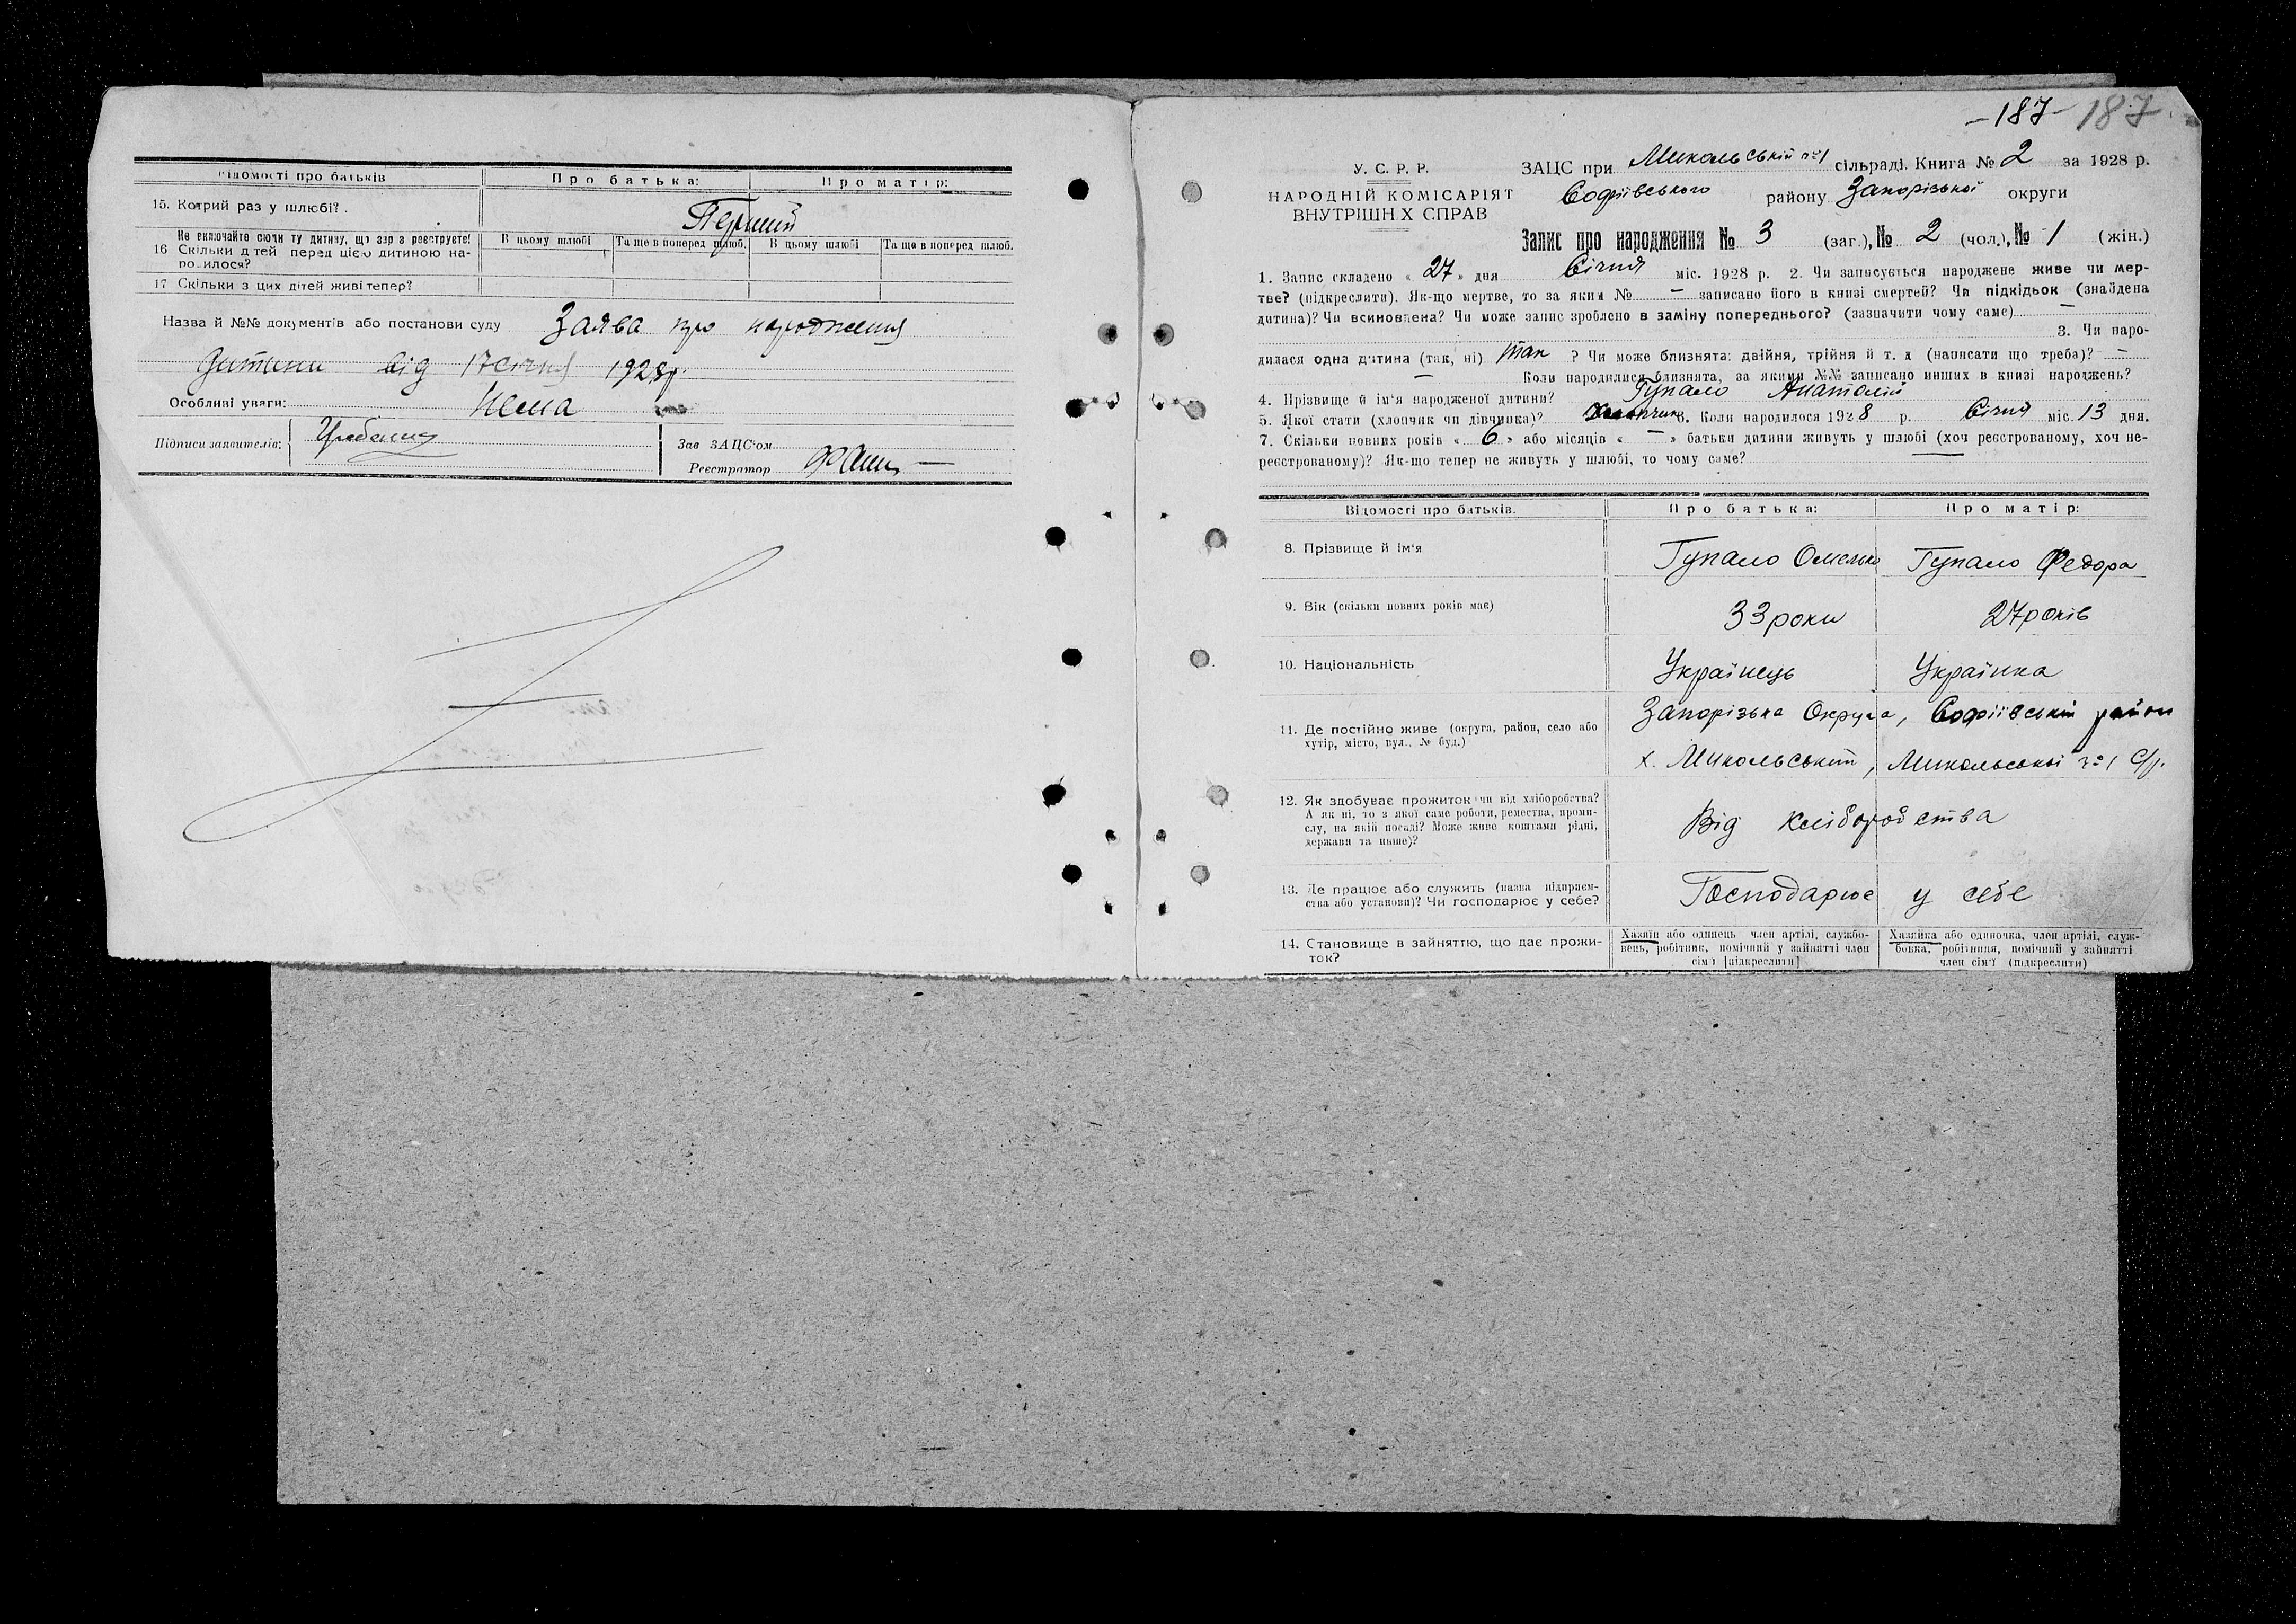 Відомості про батьків
Про батька:
Про матір:
15. Котрий раз у шлюбі?
Перший
Не включайте сюди ту дитину, що зар з реєструєте!
16 Скільки д тей перед цією дитиною на-
родилося?
В цьому шлюбі
Та ще в поперед шлюб.
В цьому шлюбі
Та ще в поперед шлюб.
17 Скільки з цих дітей живі тепер?
Назва й №№ документів або постанови суду Заява про народження
дитини від 17 січня 1928р.
Особливі уваги: Нема
Підписи заявителів:
Зав ЗАЦС'ом
Реєстратор
-187- 187
У. С. Р. Р.
НАРОДНІЙ КОМІСАРІЯТ
ВНУТРІШН.Х СПРАВ
ЗАЦС при Микольській №1 сільраді. Книга № 2 за 1928 р.
Софіївського району Запорізької округи
Запис про народження № 3 (заг.), № 2 (чол.), № 1 (жін.)
1. Запис складено « 27 » дня Січня міс. 1928 р. 2. Чи записується народжене живе чи мер-
тве? (підкреслити). Як-що мертве, то за яким № — записано його в книзі смертей? Чи підкідьок (знайдена
дитина)? Чи всиновлена? Чи може запис зроблено в заміну попереднього? (зазначити чому саме) —
3. Чи наро-
дилася одна дитина (так, ні) так ? Чи може близнята: двійня, трійня й т. д (написати що треба)? —
— Коли народилися близнята, за якими №№ записано инших в книзі народжень?
4. Прізвище й ім'я народженої дитини? Гупало Анатолій
5. Якої стати (хлопчик чи дівчинка)? Хлопчик 6. Коли народилося 1928 р. Січня міс. 13 дня.
7. Скільки повних років « 6 » або місяців « — » батьки дитини живуть у шлюбі (хоч реєстрованому, хоч не-
реєстрованому)? Як-що тепер не живуть у шлюбі, то чому саме? —
Відомості про батьків.
Про батька:
Про матір:
8. Прізвище й ім'я
Гупало Омелько
Гупало Федора
9. Вік (скільки повних років має)
33 роки
27 років
10. Національність
Українець
Українка
11. Де постійно живе (округа, район, село або
хутір, місто, вул., № буд.)
Запорізька Округа, Софіївський район
х. Микольський, Микольської №1 С/р.
12. Як здобуває прожиток чи від хліборобства?
А як ні, то з якої саме роботи, ремества, проми-
слу, на якій посаді? Може живе коштами рідні,
держави та инше)?
Від хліборобства
13. Де працює або служить (назва підприєм-
ства або установи)? Чи господарює у себе?
Господарює у себе
14. Становище в зайняттю, що дає прожи-
ток?
Хазяїн або одинець член артілі, службо-
вець, робітник, помічний у зайнятті член
сім'ї [підкреслити]
Хазяйка або одиночка, член артілі, служ-
бовка, робітниця, помічний у зайнятті
член сім'ї (підкреслити)